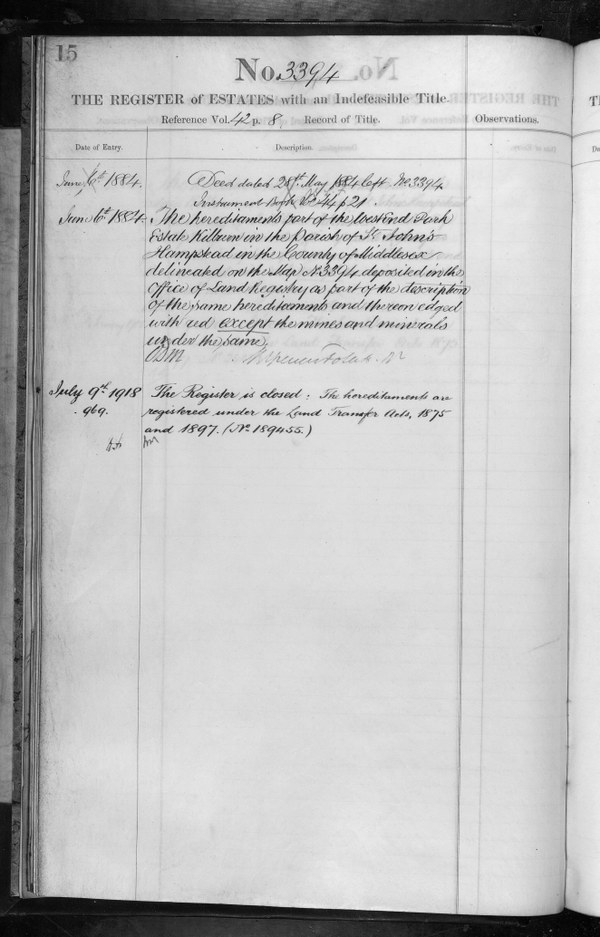 15
No. 3394
THE REGISTER of ESTATES with an Indefeasible Title.
Reference Vol. 42 p. 8 Record of Title.
Observations.
Date of Entry.
Description.
June 6th 1884.
Deed dated 28th May 1884 left No 3394
Instrument Book Vol 44 p 21.
June 6th 1884.
The hereditaments part of the West End Park
Estate Kilburn in the Parish of St. John's
Hampstead in the County of Middlesex
delineated on the Map No 3394 deposited in the
Office of Land Registry as part of the description
of the same hereditaments and thereon edged
with red except the mines and minerals
under the same.
July 9th 1918
969.
The Register is closed: The hereditaments are
registered under the Land Transfer Acts, 1875
and 1897. (No 189455.)